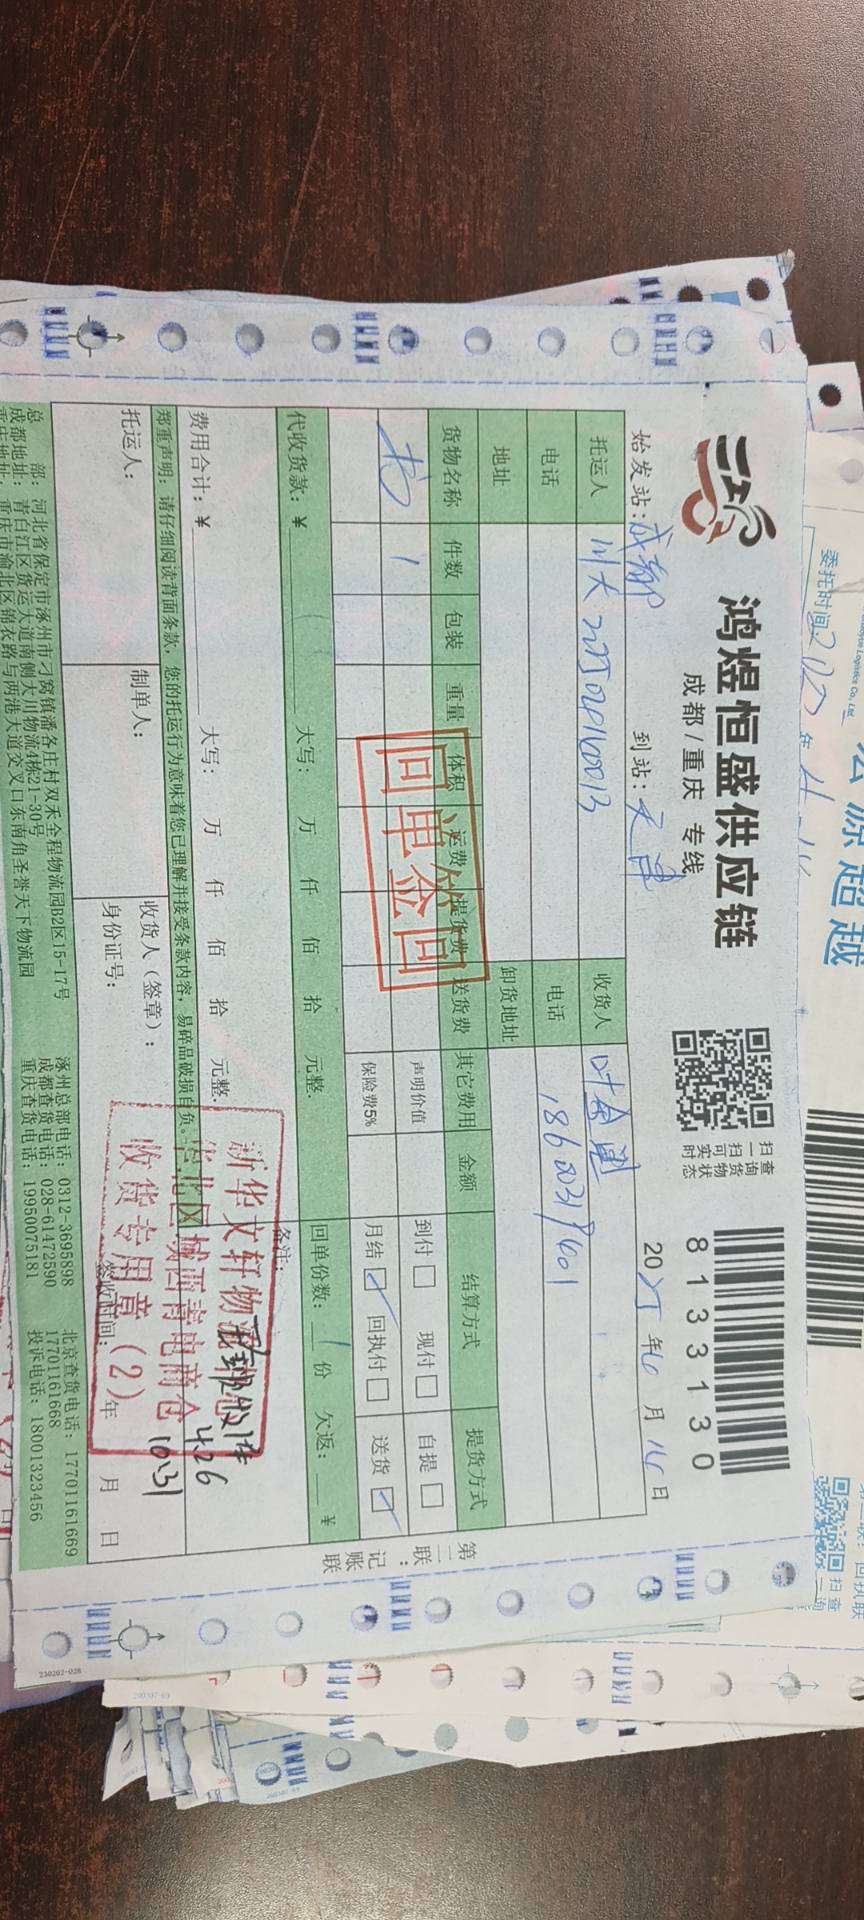 鸿煜恒盛供应链
成都/重庆 专线
扫一扫查询
可实时货物状态
81331130
始发站：成都 到站：天津 20 年 月 日
托运人 川大 收货人
电话 电话
地址 卸货地址
货物名称 件数 包装 重量 体积 运费 提货费 送货费 其它费用 金额 结算方式 提货方式
书 1 声明价值 到付 现付 自提
保险费5% 月结 回执付 送货
回单签回
代收货款：￥ 大写： 万 仟 佰 拾 元整 回单份数：1份 欠返：￥
费用合计：￥ 大写： 万 仟 佰 拾 元整 备注：
郑重声明：请仔细阅读背面条款，您的托运行为意味着您已理解并接受条款内容，易碎品破损自负。
托运人： 制单人： 收货人（签章）：
身份证号： 签收时间： 年 月 日
收货专用章（2）
4.26
10.31
总 部：河北省保定市涿州市刁窝镇潘各庄村双禾全程物流园B2区15-17号 涿州总部电话：0312-3695898 北京查货电话：17701161669
成都地址：青白江区货运大道南侧大川物流4栋21-30号 成都查货电话：028-61472590 17701161668
重庆地址：重庆市渝北区锦衣路与两港大道交叉口东南角圣誉天下物流园 重庆查货电话：19950075181 投诉电话：18001323456
第二联：记账联
230202-028
委托时间：
宏源超越